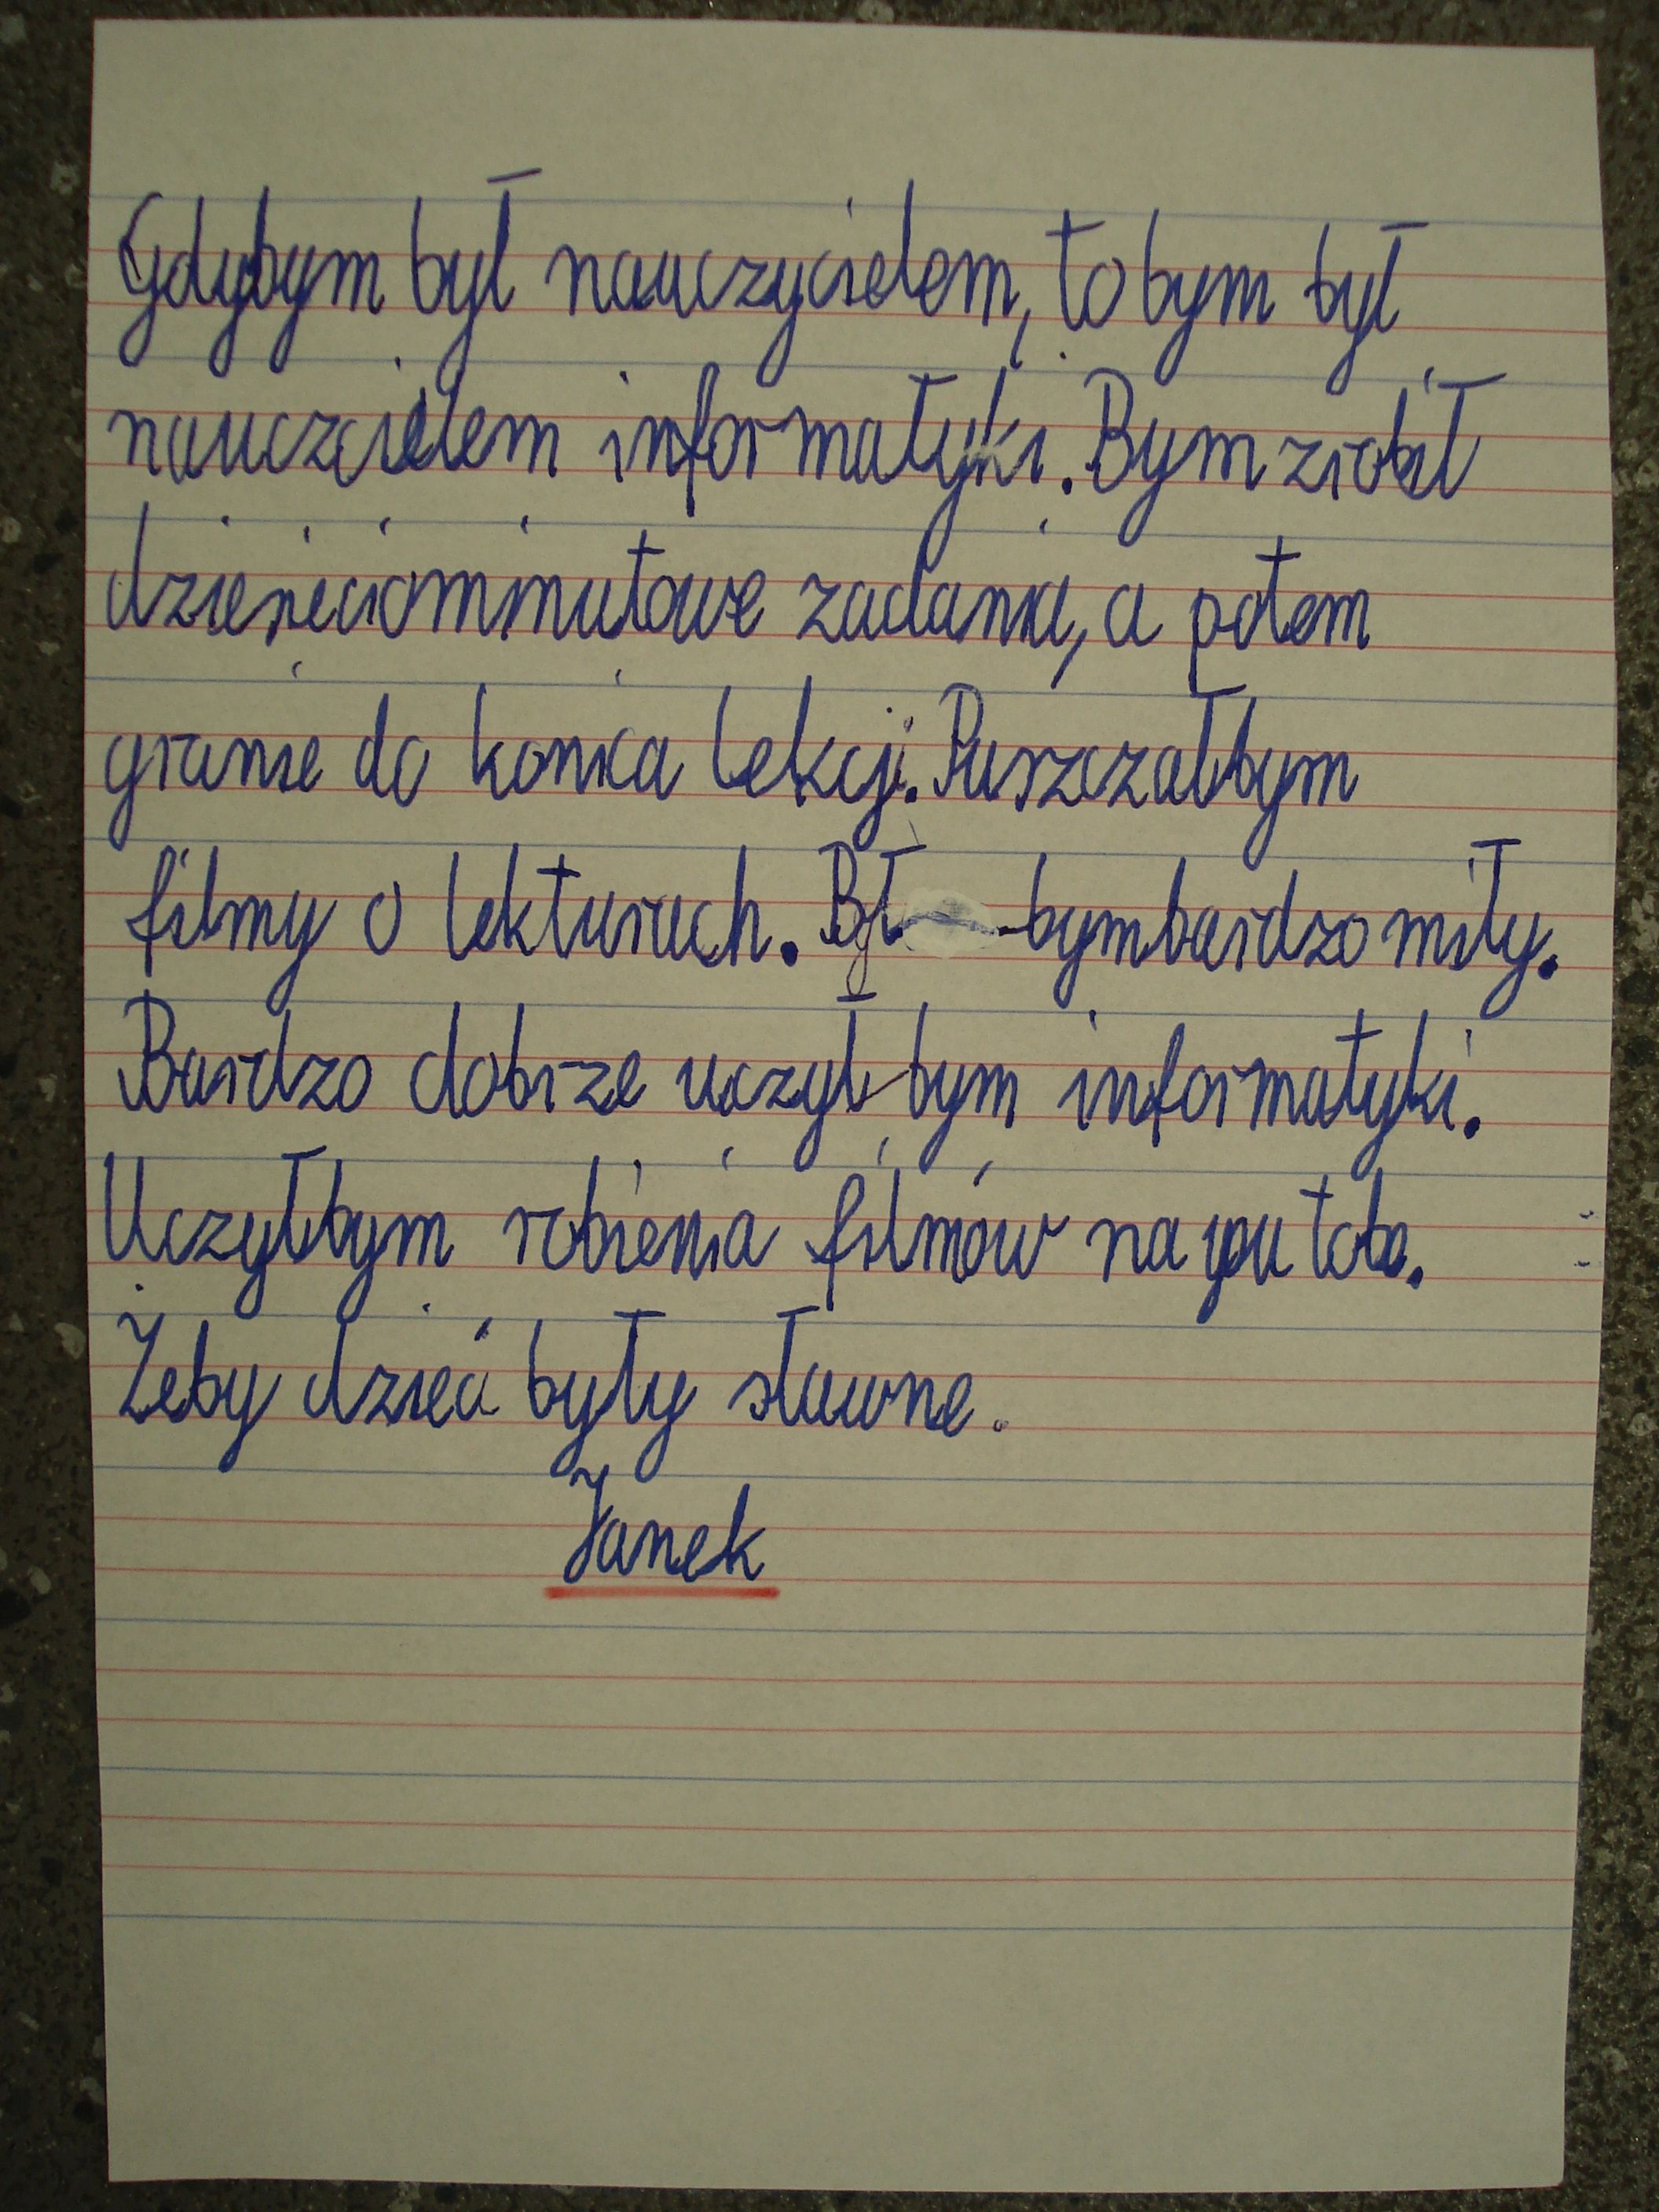 Gdybym był nauczycielem, to bym był
nauczcielem informatyki. Bym zrobił
dziesięciominutowe zadania, a potem
granie do końca lekcji. Puszczałbym
filmy o lekturach. Był bym bardzo miły.
Bardzo dobrze uczył bym informatyki.
Uczyłbym robienia filmów na you tobo.
Żeby dzieci były sławne.
Janek